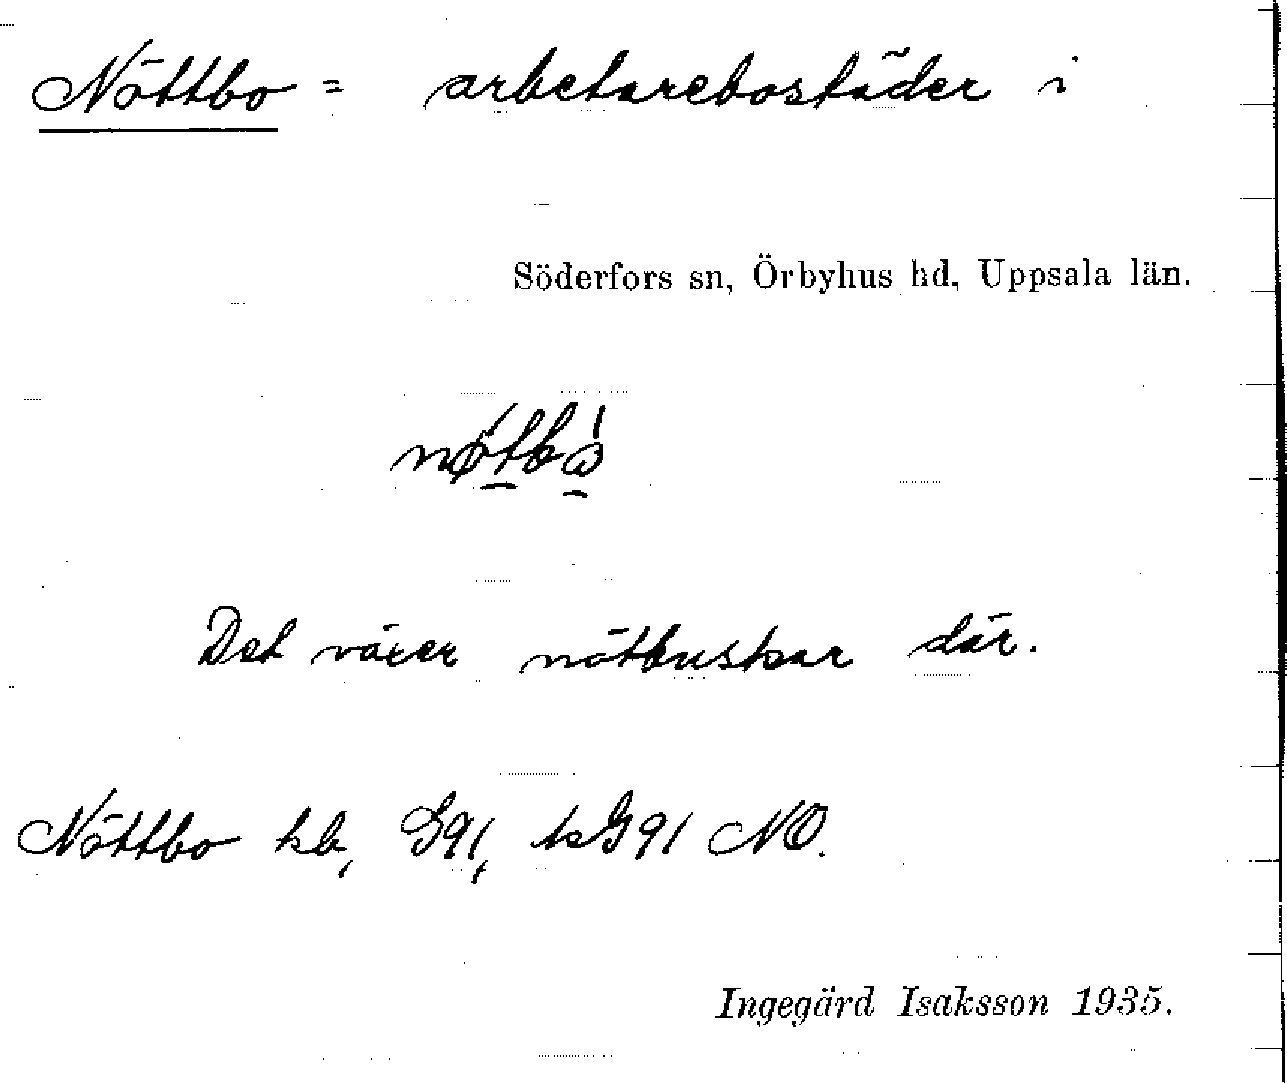 Nöttbo = arbetarebostäder i
Söderfors sn, Örbyhus hd, Uppsala län.
Det växer nötbuskar där.
Nöttbo kb, G91, ks G91 NO.
Ingegärd Isaksson 1935.